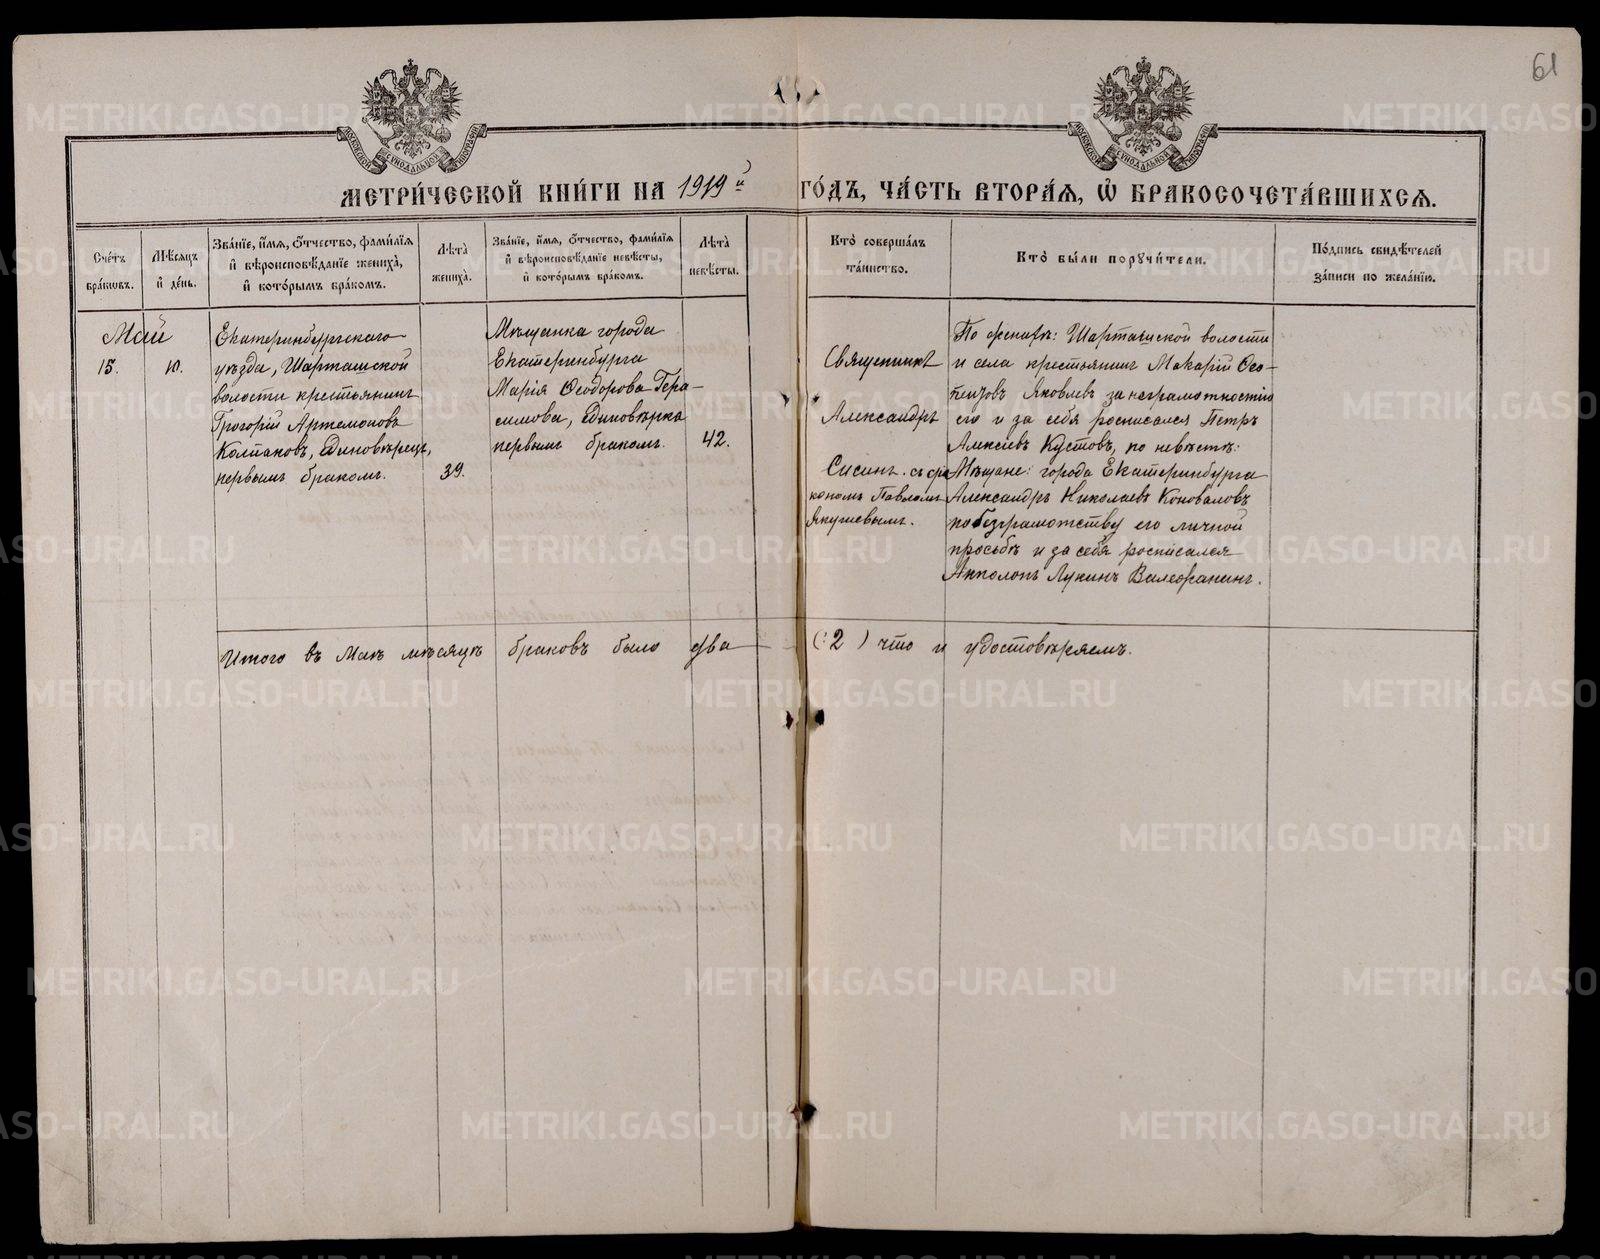 61
МЕТРИ́ЧЕСКОЙ КНИ́ГИ НА 1919й ГО́ДЪ, ЧА́СТЬ ВТОРА́Я, Ѿ БРАКОСОЧЕТА́ВШИХСЯ.
Сче́тъ бра́ковъ.
Мѣ́сяцъ и́ де́нь.
Зва́нїе, и́мя, ѻ́тчество, фами́лїя
и҆ вѣроисповѣ́данїе жениха̀,
и҆ кото́рымъ бра́комъ.
Лѣ́та̀
жениха̀.
Зва́нїе, и́мя, ѻ́тчество, фами́лїя
и҆ вѣроисповѣ́данїе невѣ́сты,
и҆ кото́рымъ бра́комъ.
Лѣ́та̀
невѣ́сты.
Кто̀ соверша́лъ
та́инство.
Кто̀ бы́ли порꙋчи́тели.
По́дпись свидѣ́телей
за́писи по жела́нїю.
Май
15. 10.
Екатеринбургскаго
уѣзда, Шарташской
волости крестьянинъ
Григорій Артемоновъ
Колпаковъ, Единовѣрецъ,
первымъ бракомъ.
39.
Мѣщанка города
Екатеринбурга
Марія Ѳеодорова Гера-
симова, Единовѣрка
первымъ бракомъ.
42.
Священникъ
Александръ
Сисинъ. съ діа
кономъ Павломъ
Якушевымъ.
По женихѣ: Шарташской волости
и села крестьянинъ Макарій Ѳео-
пентовъ Яковлевъ за неграмотностію
его и за себя росписался Петръ
Алексіевъ Кустовъ, по невѣстѣ:
Мѣщане: города Екатеринбурга
Александръ Николаевъ Коноваловъ
по безграмотству его личной
просьбѣ и за себя росписался
Лукинъ
Итого въ Маѣ мѣсяцѣ браковъ было два (:2) что и удостовѣряемъ.
METRIKI.GASO-URAL.RU